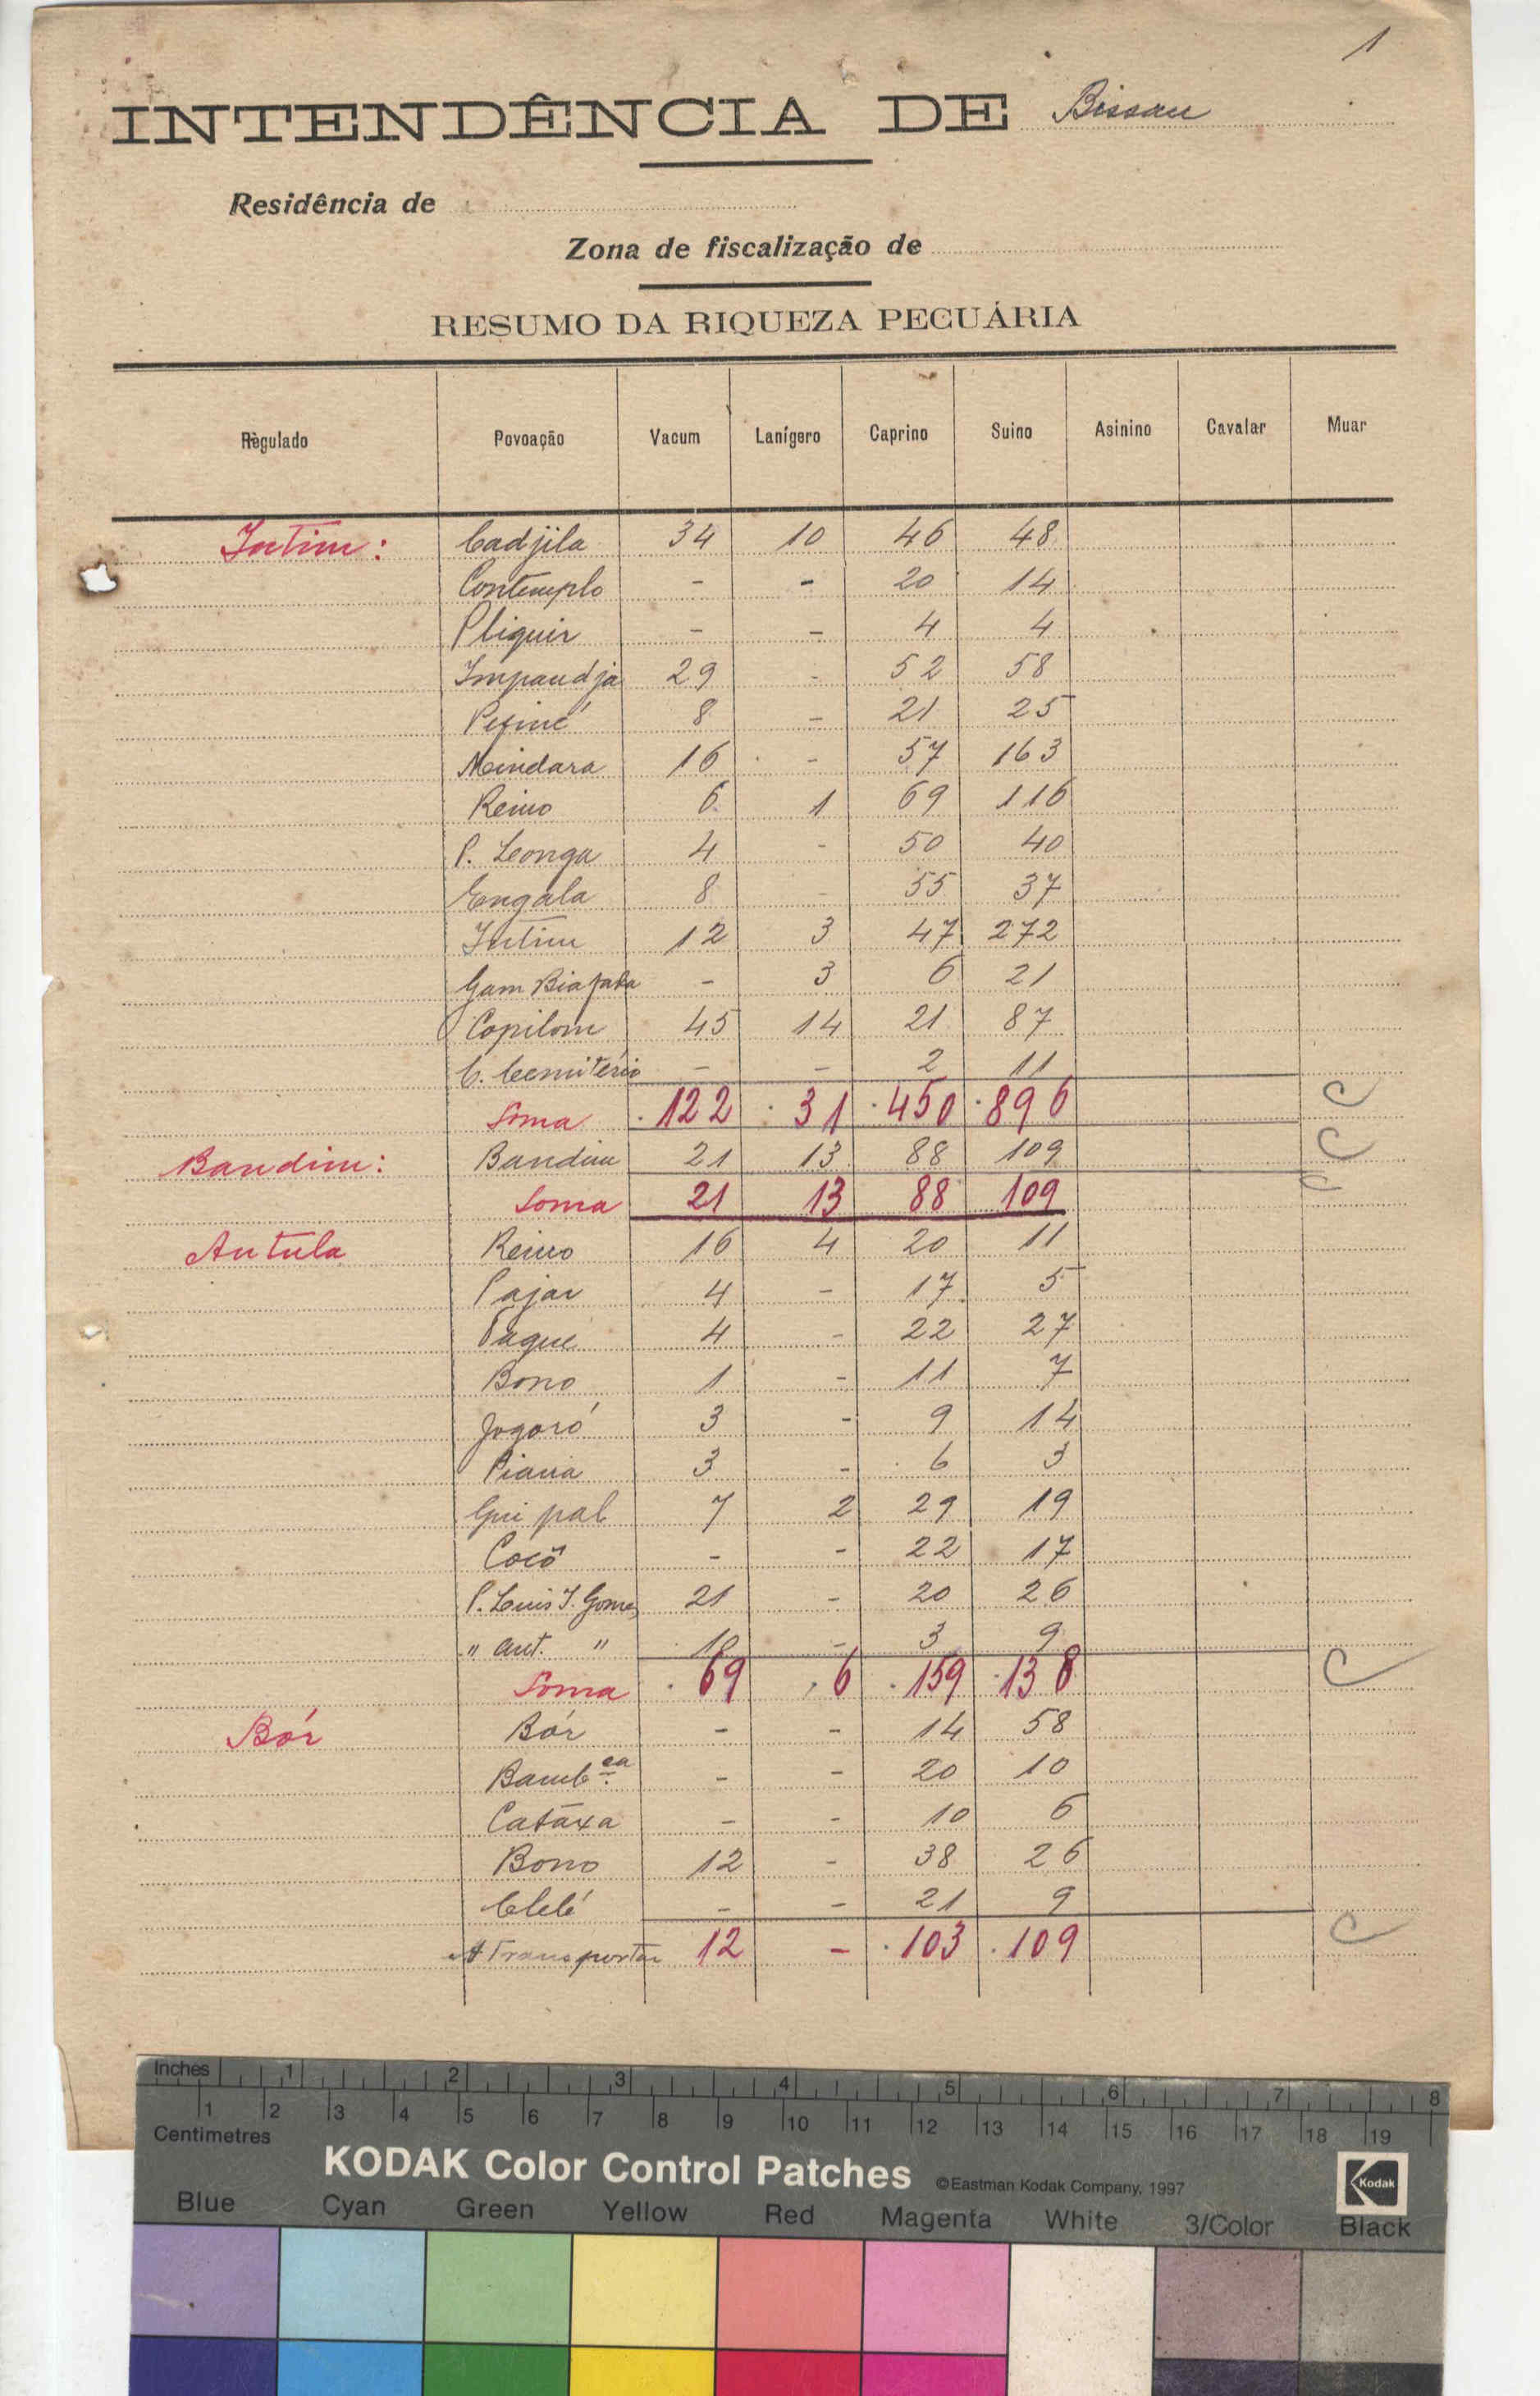 1
INTENDÊNCIA DE Bissau
Residência de
Zona de fiscalização de
RESUMO DA RIQUEZA PECUÁRIA
Règulado Povoação Vacum Lanígero Caprino Suino Asinino Cavalar Muar
Intim: Cadjila 34 10 46 48
Contemplo - - 20 14
Pliquir - - 4 4
Impandja 29 - 52 58
Pefiné 8 - 21 25
Mindara 16 - 57 163
Reino 6 1 69 116
P. Leonga 4 - 50 40
Engala 8 - 55 37
Intim 12 3 47 272
Gam Biafada - 3 6 21
Copilom 45 14 21 87
C. Cemitério - - 2 11
Soma 122 31 450 896
Bandim: Bandim 21 13 88 109
Soma 21 13 88 109
Antula Reino 16 4 20 11
Pajar 4 - 17 5
Pague 4 - 22 27
Bono 1 - 11 7
Jogoró 3 - 9 14
Piana 3 - 6 3
Gui pal 7 2 29 19
Cocô - - 22 17
P. Luis J. Gomes 21 - 20 26
" Ant. " 10 - 3 9
Soma 69 6 159 138
Bór Bór - - 14 58
Bamb.ea - - 20 10
Catáxa - - 10 6
Bono 12 - 38 26
Clelé - - 21 9
A Transportar 12 - 103 109
Inches 1 2 3 4 5 6 7 8
1 2 3 4 5 6 7 8 9 10 11 12 13 14 15 16 17 18 19
Centimetres
KODAK Color Control Patches ©Eastman Kodak Company, 1997 Kodak
Blue Cyan Green Yellow Red Magenta White 3/Color Black